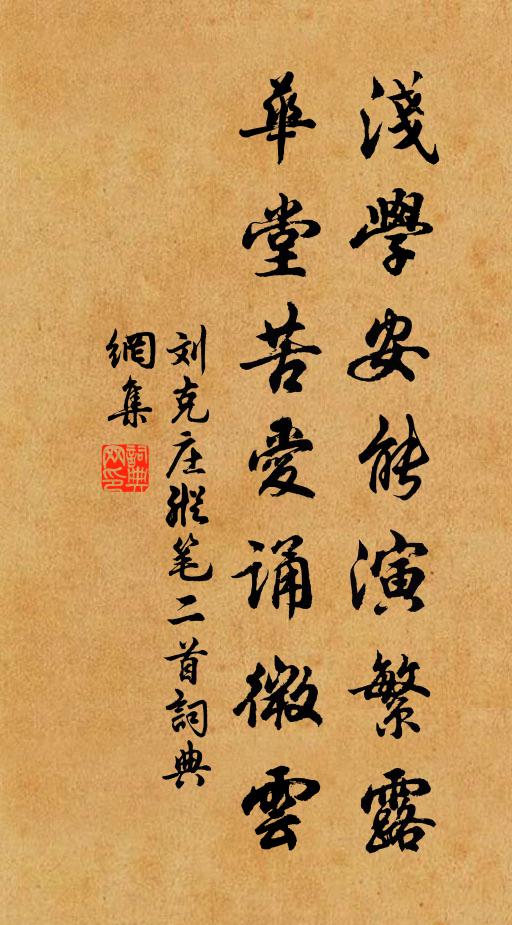 淺學安能演繁露
華堂苦愛誦微雲
刘克庄縱笔二首詞典
網集
詞典
网印